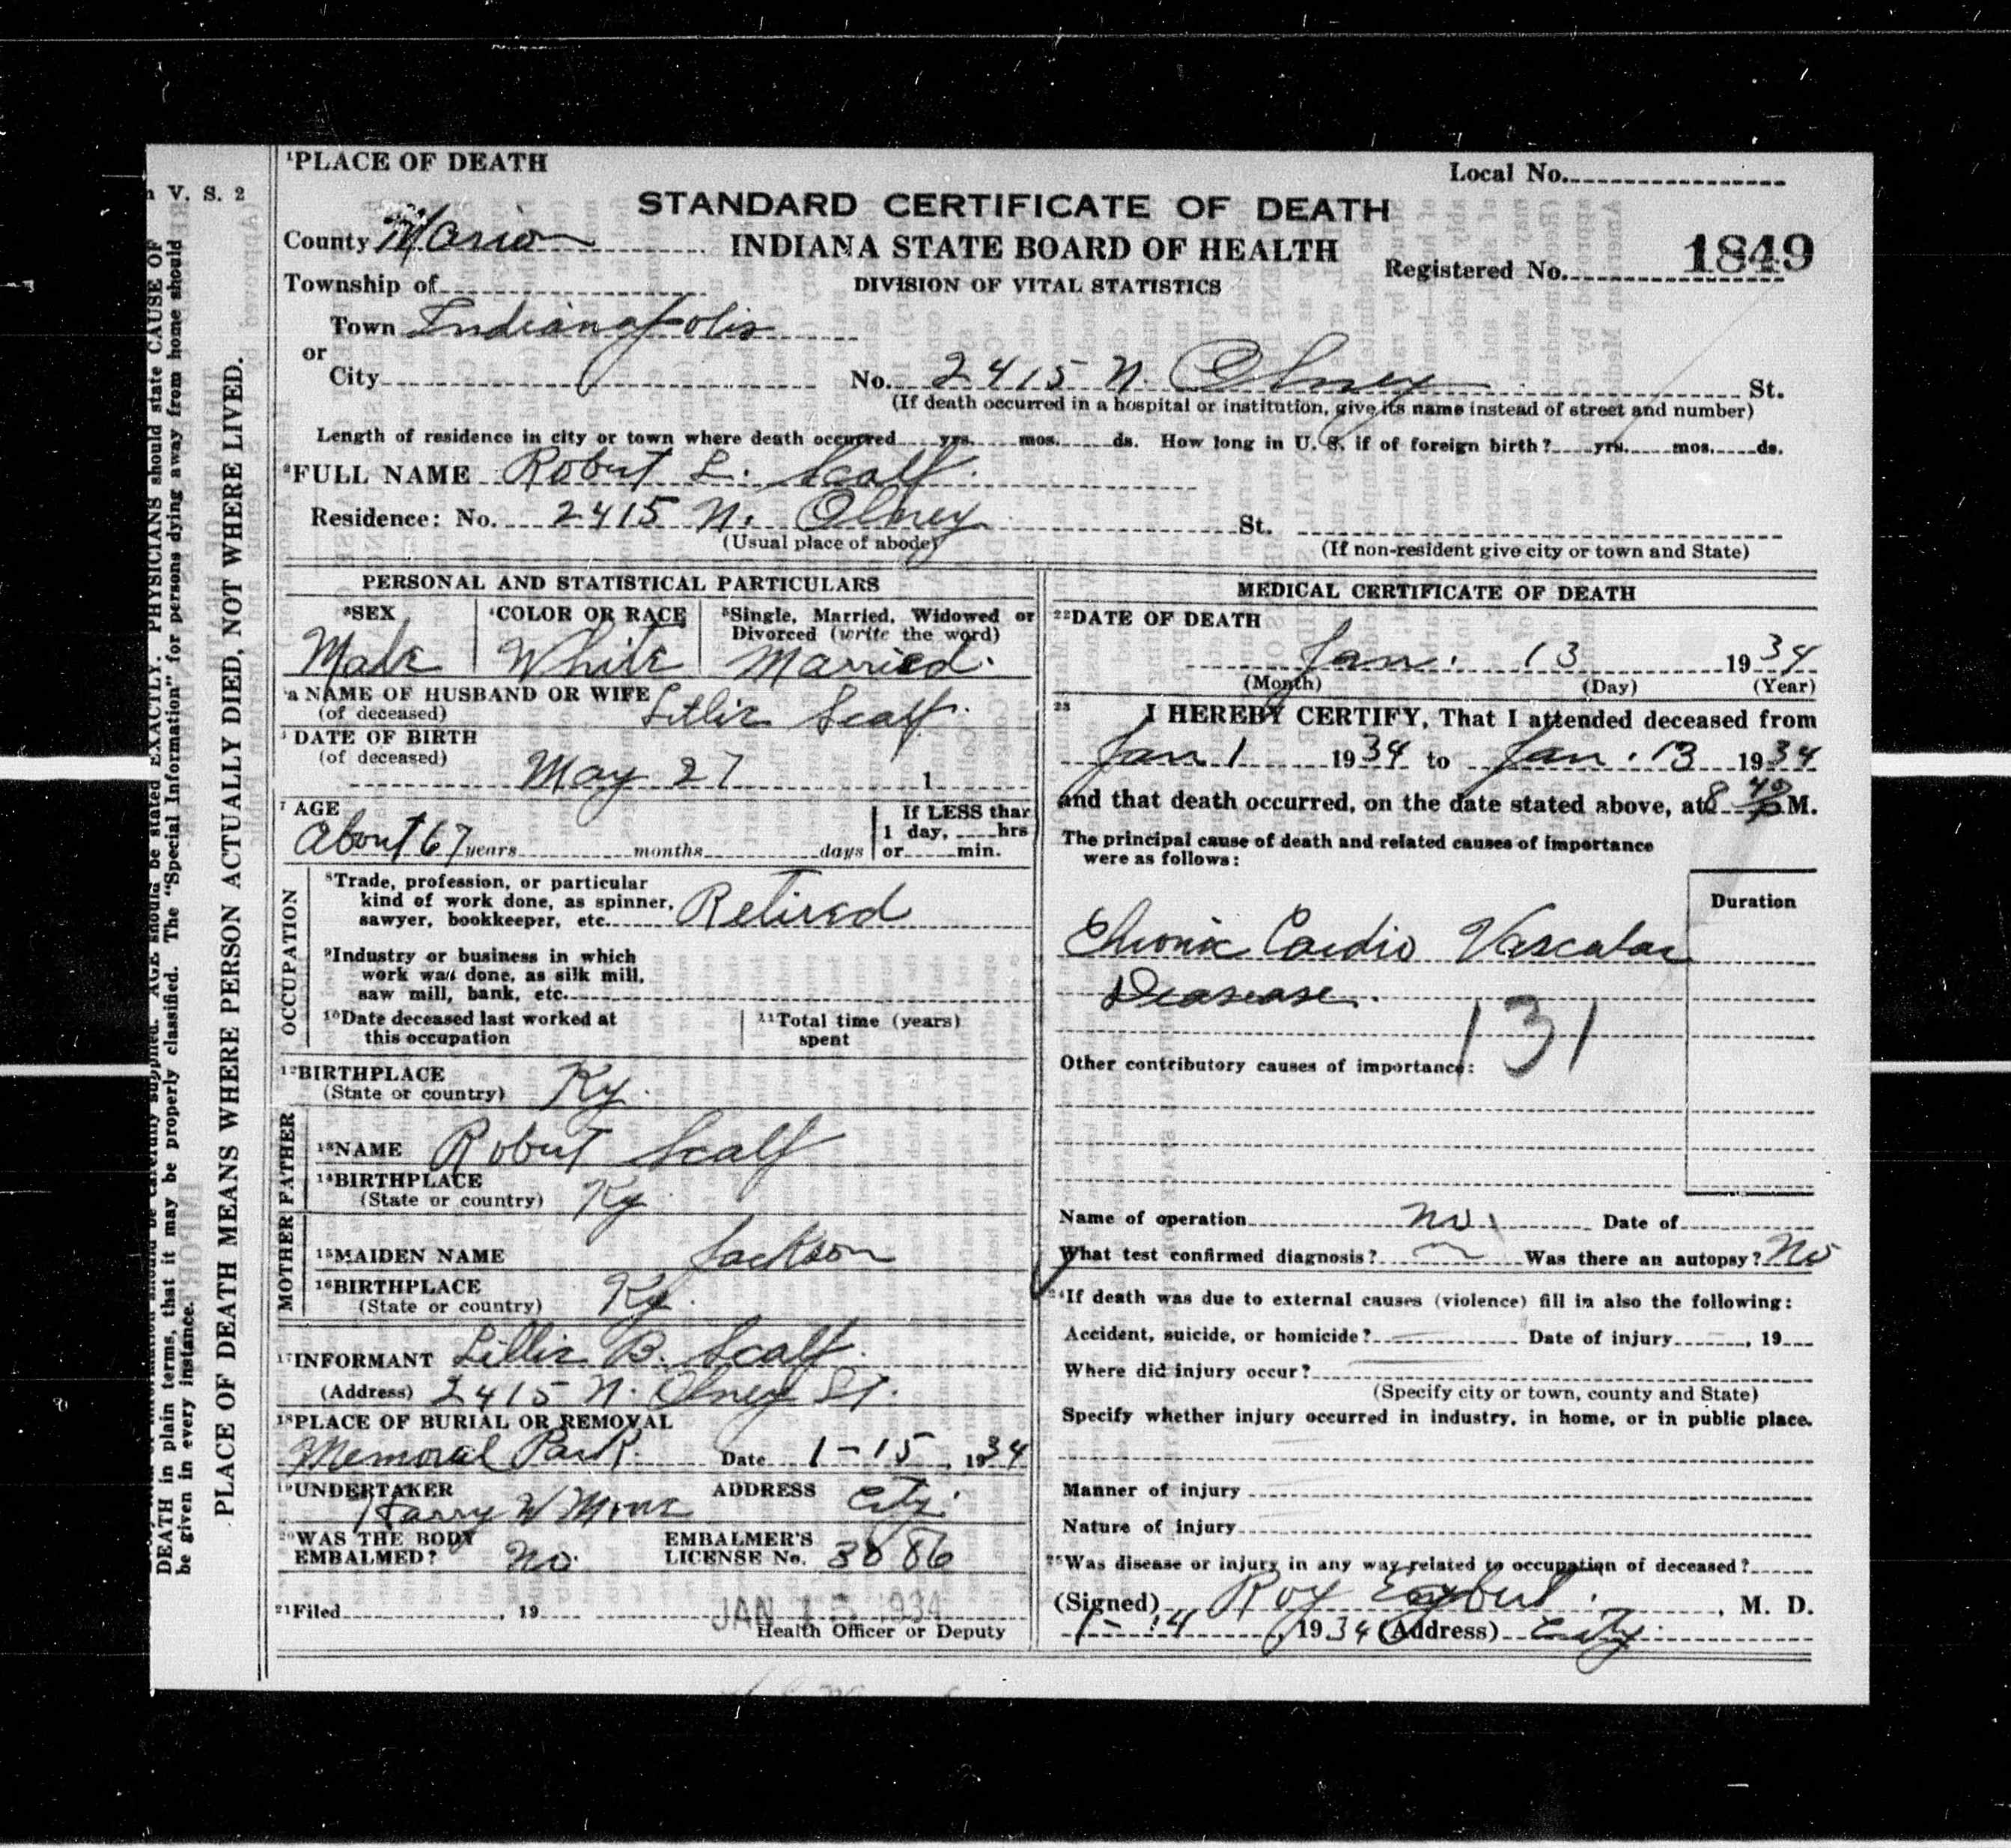 ¹PLACE OF DEATH
Local No.
STANDARD CERTIFICATE OF DEATH
County Marion
INDIANA STATE BOARD OF HEALTH
Registered No. 1849
Township of
DIVISION OF VITAL STATISTICS
Town Indianapolis
or
City
No. 2415 N. Olney St.
(If death occurred in a hospital or institution, give its name instead of street and number)
Length of residence in city or town where death occurred yrs. mos. ds. How long in U. S. if of foreign birth? yrs. mos. ds.
²FULL NAME Robert L. Scalf.
Residence: No. 2415 N. Olney St.
(Usual place of abode)
(If non-resident give city or town and State)
PERSONAL AND STATISTICAL PARTICULARS
³SEX Male
⁴COLOR OR RACE White
⁵Single, Married, Widowed or
Divorced (write the word)
Married.
a NAME OF HUSBAND OR WIFE
(of deceased)
Lillie Scalf.
DATE OF BIRTH
(of deceased)
May 27 1
⁷AGE
About 67 years months days
If LESS than
1 day, hrs
or min.
OCCUPATION
⁸Trade, profession, or particular
kind of work done, as spinner,
sawyer, bookkeeper, etc. Retired
⁹Industry or business in which
work was done, as silk mill,
saw mill, bank, etc.
¹⁰Date deceased last worked at
this occupation
¹¹Total time (years)
spent
¹²BIRTHPLACE
(State or country) Ky.
FATHER
¹³NAME Robert Scalf
¹⁴BIRTHPLACE
(State or country) Ky.
MOTHER
¹⁵MAIDEN NAME Jackson
¹⁶BIRTHPLACE
(State or country) Ky.
¹⁷INFORMANT Lillie B. Scalf.
(Address) 2415 N. Olney St.
¹⁸PLACE OF BURIAL OR REMOVAL
Memoral Park. Date 1-15, 1934
¹⁹UNDERTAKER ADDRESS
Harry W City.
²⁰WAS THE BODY
EMBALMED? No.
EMBALMER'S
LICENSE No. 3086
²¹Filed , 19
JAN 1 1934
Health Officer or Deputy
MEDICAL CERTIFICATE OF DEATH
²²DATE OF DEATH
Jan. 13 1934
(Month) (Day) (Year)
²³ I HEREBY CERTIFY, That I attended deceased from
Jan 1 1934 to Jan. 13 1934
and that death occurred, on the date stated above, at 8 M.
The principal cause of death and related causes of importance
were as follows:
Duration
Chronic Cardio Vascular
Deasease.
131
Other contributory causes of importance:
Name of operation no. Date of
What test confirmed diagnosis? Was there an autopsy? No
²⁴If death was due to external causes (violence) fill in also the following:
Accident, suicide, or homicide? Date of injury , 19
Where did injury occur?
(Specify city or town, county and State)
Specify whether injury occurred in industry, in home, or in public place.
Manner of injury
Nature of injury
²⁵Was disease or injury in any way related to occupation of deceased?
(Signed) Roy Egbert , M. D.
1-14, 1934 (Address) City.
V. S. 2
PHYSICIANS should state CAUSE OF
DEATH in plain terms, that it may be properly classified. The "Special Information" for persons dying away from home should
be given in every instance.
PLACE OF DEATH MEANS WHERE PERSON ACTUALLY DIED, NOT WHERE LIVED.